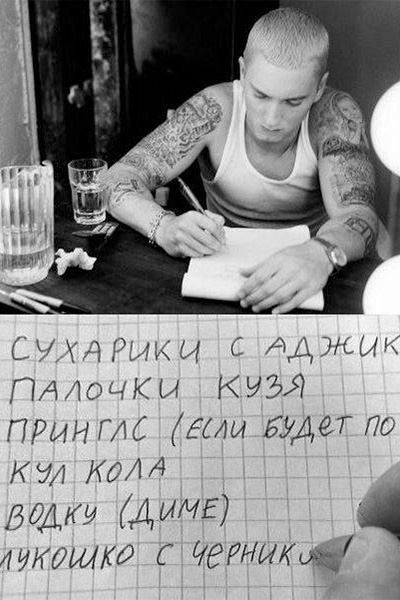 СУХАРИКИ С АДЖИК
ПАЛОЧКИ КУЗЯ
ПРИНГЛС (ЕСЛИ БУДЕТ ПО
КУЛ КОЛА
ВОДКУ (ДИМЕ)
ЛУКОШКО С ЧЕРНИК